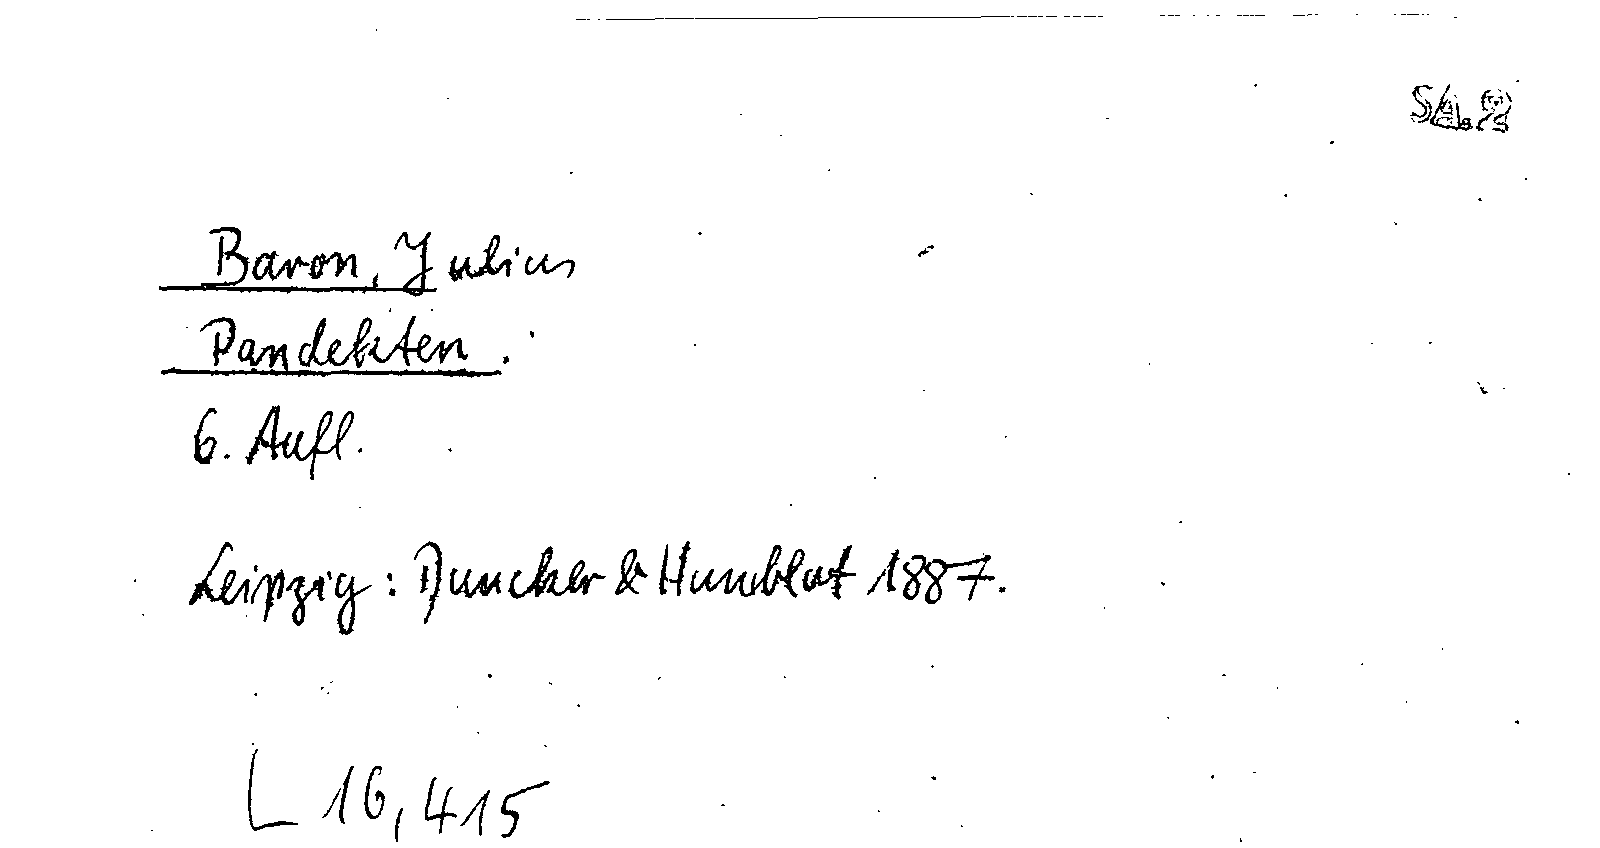 SA.2
Baron, Julius
Pandekten.
6. Aufl.
Leipzig: Duncker & Humblot 1887.
L 16,415